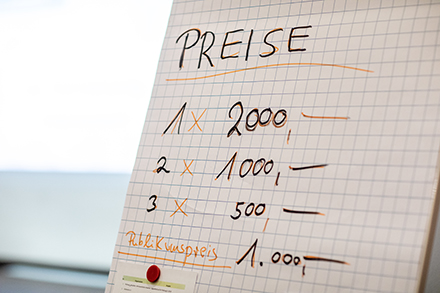 PREISE
1 x 2000,—
2 x 1000,—
3 x 500,—
Publikumspreis 1.000,—